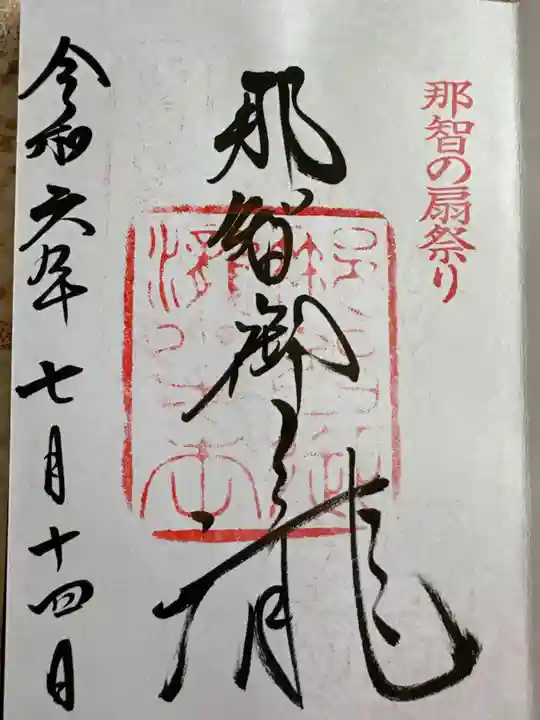 那智の扇祭り
那智御瀧
令和六年七月十四日